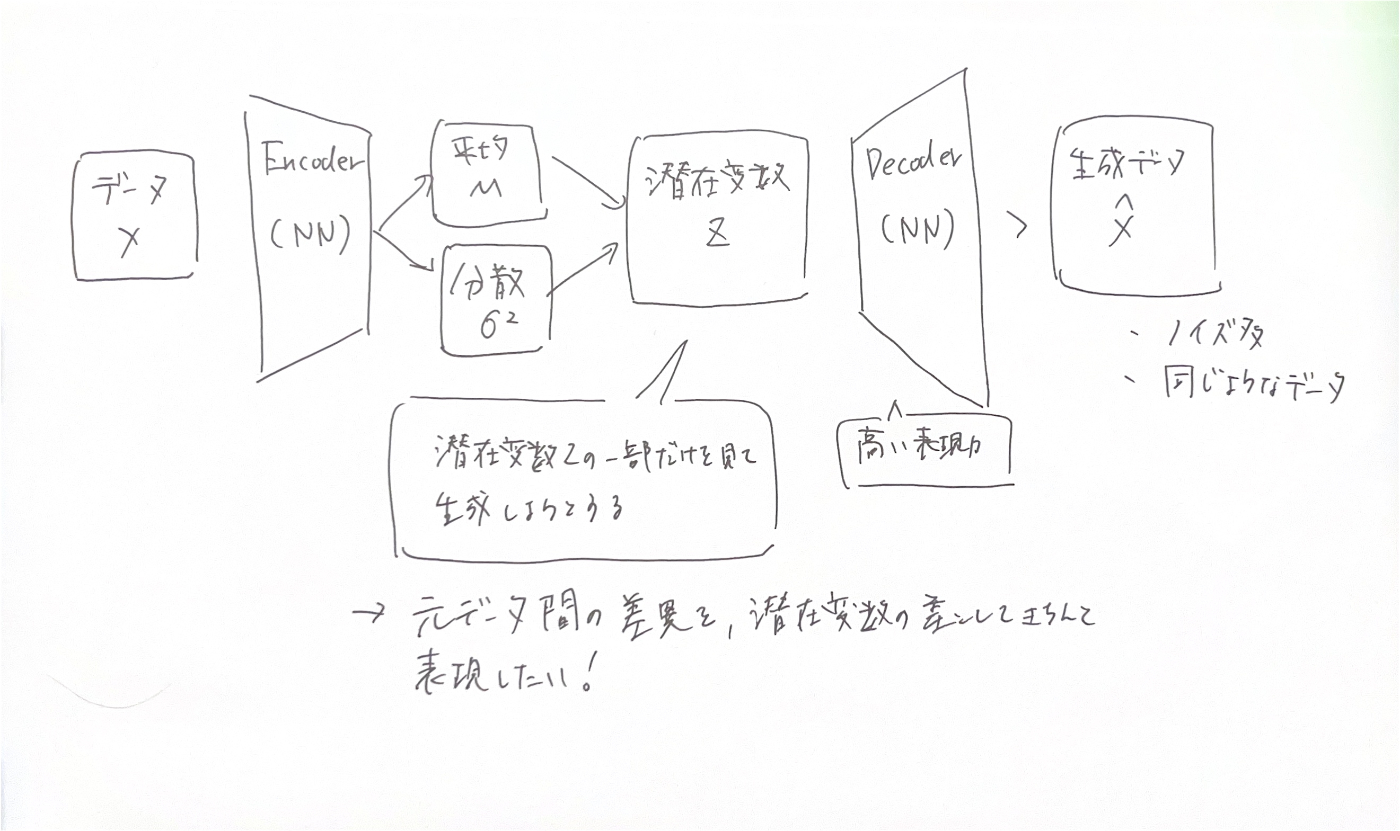 データ
X
Encoder
(NN)
平均
μ
分散
σ²
潜在変数
Z
Decoder
(NN)
>
生成データ
X̂
・ノイズ多
・同じようなデータ
高い表現力
潜在変数Zの一部だけを見て
生成しようとする
→ 元データ間の差異を, 潜在変数の差としてきちんと
表現したい!